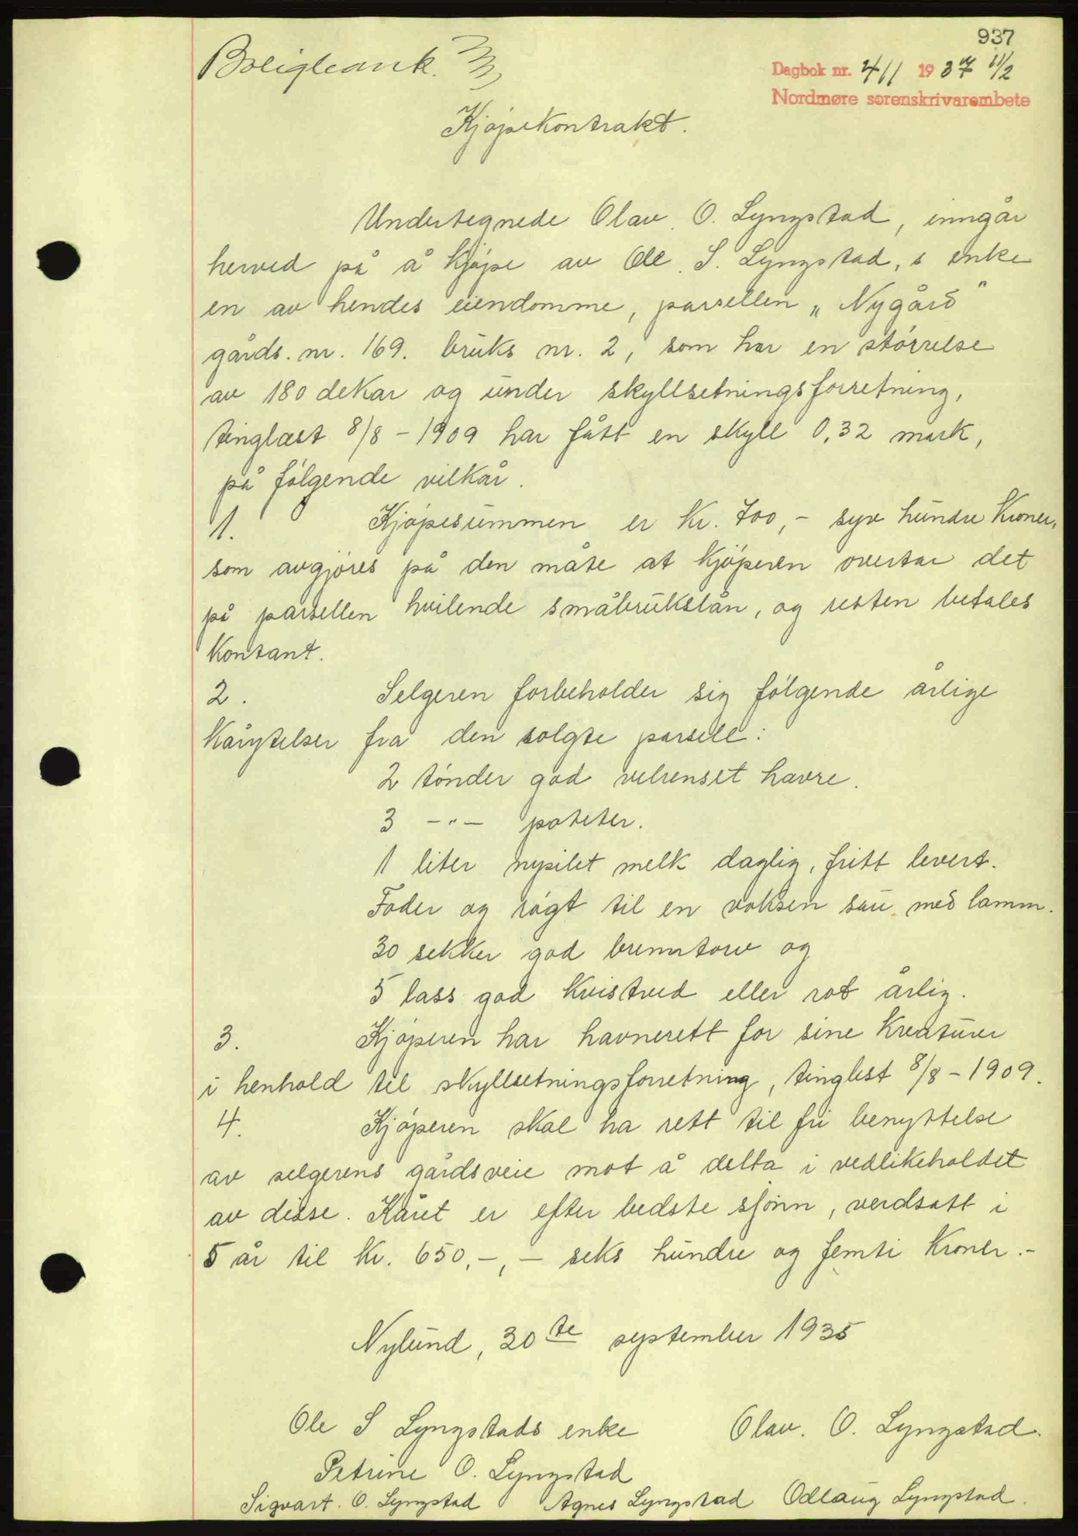 937
Boligbank.
Dagbok nr. 411 1937 11/2
Nordmøre sorenskrivarembete
Kjøpekontrakt.
Undertegnede Olav. O. Lyngstad, inngår
herved på å kjøpe av Ole. S. Lyngstad, s enke
en av hendes eiendomme, parsellen „Nygård"
gårds. nr. 169. bruks nr. 2, som har en størrelse
av 180 dekar og under skyllsetningsforretning,
tinglæst 8/8 - 1909 har fått en skyll 0,32 mark,
på følgende vilkår.
1. Kjøpesummen er kr. 700,- syv hundre kroner,
som avgjøres på den måte at kjøperen overtar det
på parsellen hvilende småbrukslån, og resten betales
kontant.
2. Selgeren forbeholder sig følgende årlige
kårytelser fra den solgte parsell:
2 tønder god velrenset havre.
3 -"- poteter.
1 liter nysilet melk daglig, fritt levert.
Foder og røgt til en voksen sau med lamm.
30 sekker god brenntorv og
5 lass god kvistved eller rot årlig.
3. Kjøperen har havnerett for sine kreaturer
i henhold til skyllsetningsforretning, tinglest 8/8 - 1909.
4. Kjøperen skal ha rett til fri benyttelse
av selgerens gårdsveie mot å delta i vedlikeholdet
av disse. Kåret er efter bedste skjønn, verdsatt i
5 år til kr. 650,-,- seks hundre og femti kroner.-
Nylund, 30te september 1935
Ole S Lyngstads enke Olav. O. Lyngstad.
Petrine O. Lyngstad
Sigvart. O. Lyngstad Agnes Lyngstad Odlaug Lyngstad.